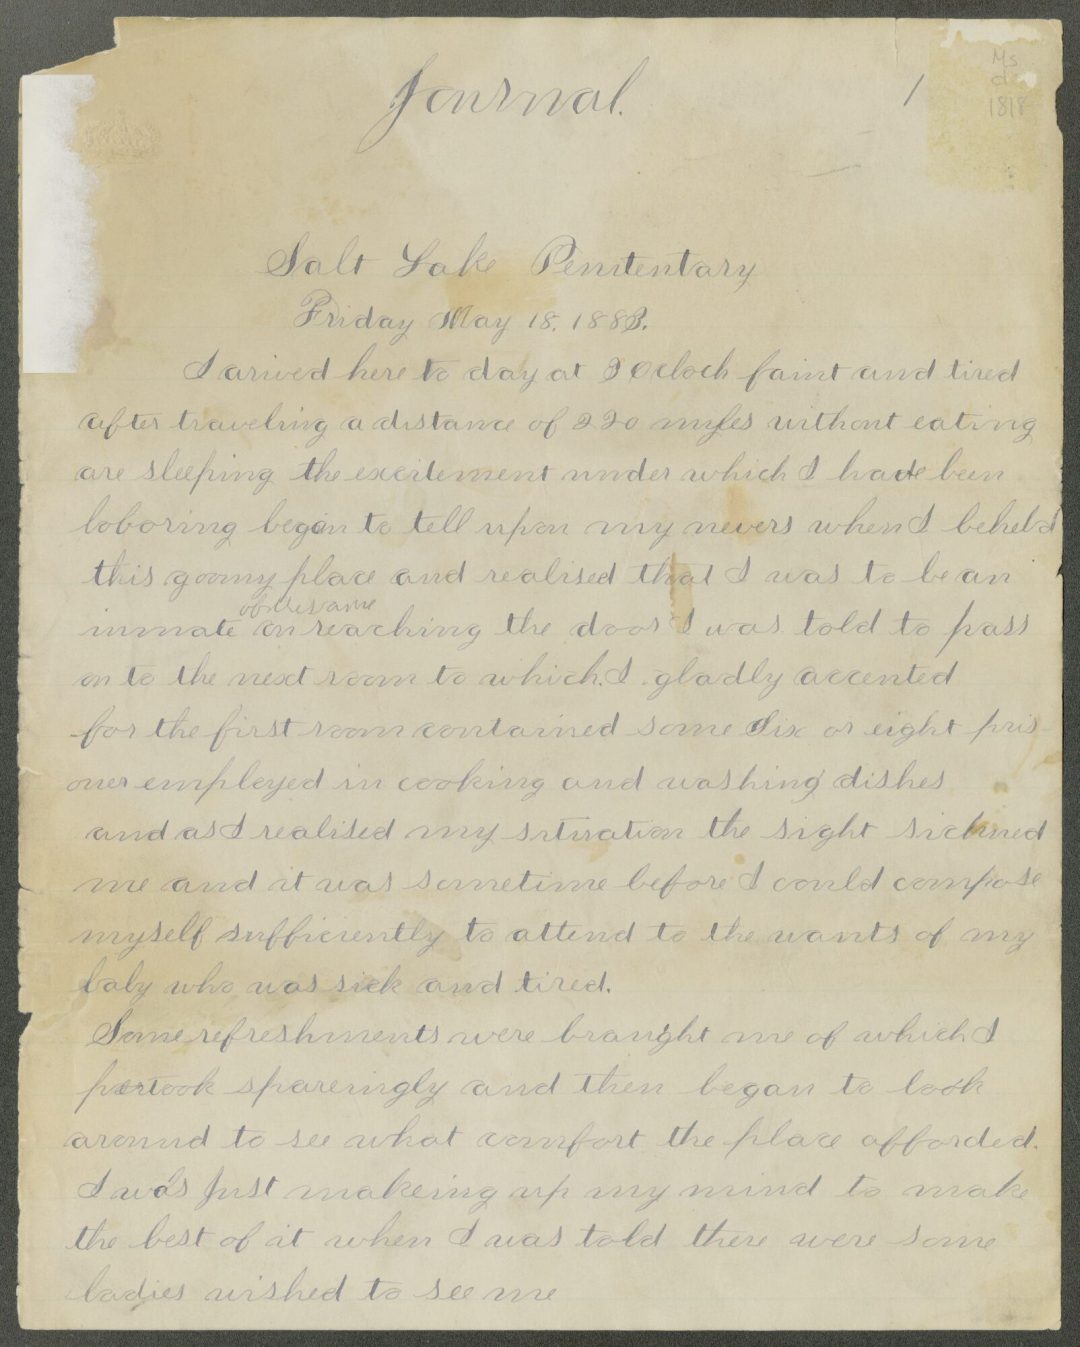 Journal.
1
Ms
d
1818
Salt Lake Penitentary
Friday May 18. 1883.
I arived here to day at 3 Ocloch faint and tired
after travelring a distance of 220 myles without eating
are sleeping. the excitement under which I have been
loboring began to tell upon my nevers when I beheld
this goomy place and realised that I was to be an
of the same
inmate on reaching the door I was told to pass
on to the next room to which. I gladly accented
for the first room contained some Six or eight pris-
oner employed in cooking and washing dishes
and as I realised my situration the sight sickned
me and it was sometime before I could compose
myself sufficiently to attend to the wants of my
baby who was sick and tired.
Some refreshments were braught me of which I
pertook spareingly and then began to look
around to see what comfort the place afforded.
I was Just makeing up my mind to make
the best of it when I was told there were some
ladies wished to see me